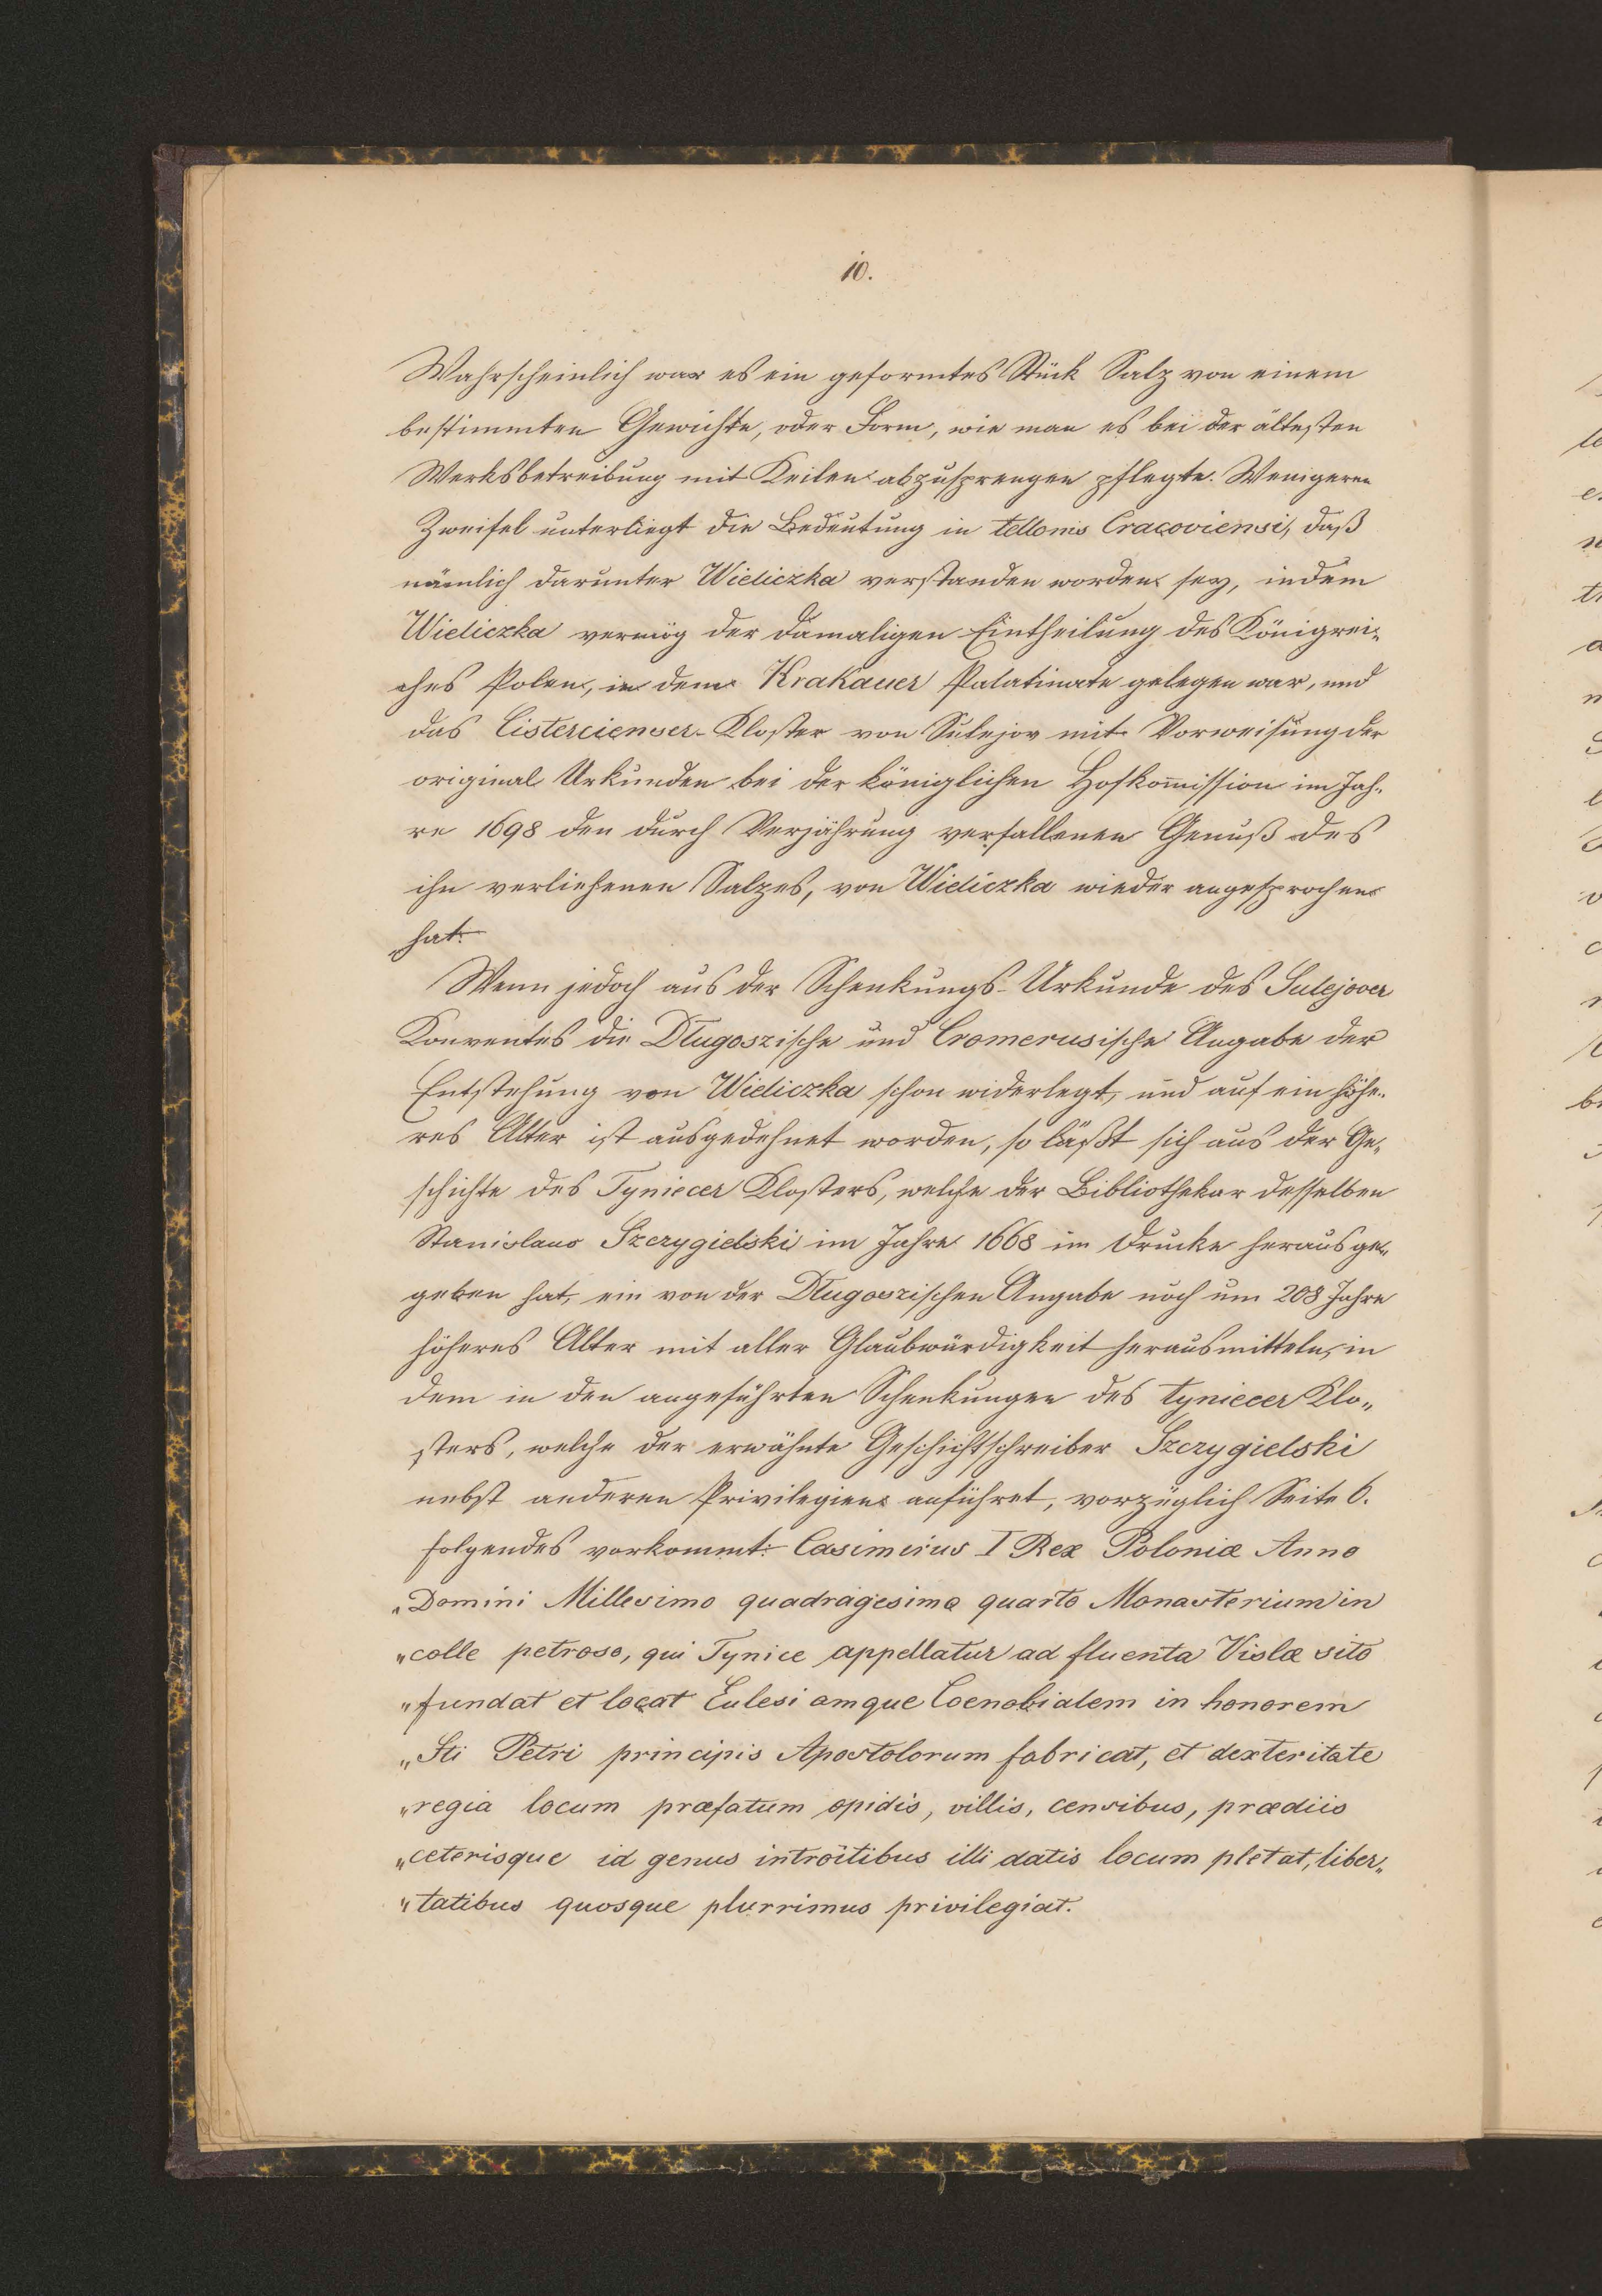 10.
Wahrscheinlich war es ein geformtes Stück Salz von einem
bestimmten Gewichte, oder Form, wie man es bei der ältesten
Werksbetreibung mit Keilen abzusprengen pflegte. Wenigeren
Zweifel unterliegt die Bedeutung in tellonio Cracoviensi, daß
nämlich darunter Wieliczka verstanden worden sey, indem
Wieliczka vermög der damaligen Eintheilung des Königrei-
ches Polen, in dem Krakauer Palatinate gelegen war, und
das Cistercienser-Kloster von Sulejov mit Vorweisung der
original Urkunden bei der königlichen Hofkom̄ission im Jah-
re 1698 den durch Verjährung verfallenen Genuß des
ihn verliehenen Salzes, von Wieliczka wieder angesprochen
hat.
Wenn jedoch aus der Schenkungs-Urkunde des Sulejover
Konventes die Długoszische und Cromerusische Angabe der
Entstehung von Wieliczka schon widerlegt, und auf ein höhe-
res Alter ist ausgedehnet worden, so läßt sich aus der Ge-
schichte des Tyniecer Klosters, welche der Bibliothekar desselben
Stanislaus Szczygielski im Jahre 1668 im Drucke herausge-
geben hat, ein von der Długoszischen Angabe noch um 208 Jahre
höheres Alter mit aller Glaubwürdigkeit herausmitteln, in
dem in den angeführten Schenkungen des Tyniecer Klo„
sters, welche der erwähnte Geschichtschreiber Szczygielski
nebst anderen Privilegien anführet, vorzüglich Seite 6.
folgendes vorkommt: Casimirus I Rex Poloniæ Anno
„Domini Millesimo quadragesimo quarto Monasterium in
„colle petroso, qui Tynice appellatur ad fluenta Vislæ sito
„fundat et locat Eulesiamque Coenobialem in honorem
„Sti Petri principis Apostolorum fabricat, et dexteritate
„regia locum præfatum opidis, villis, censibus, prædiis
„ceterisque id genus introitibus illi datis locum pletat, liber„
„tatibus quosque plurrimus privilegiat.